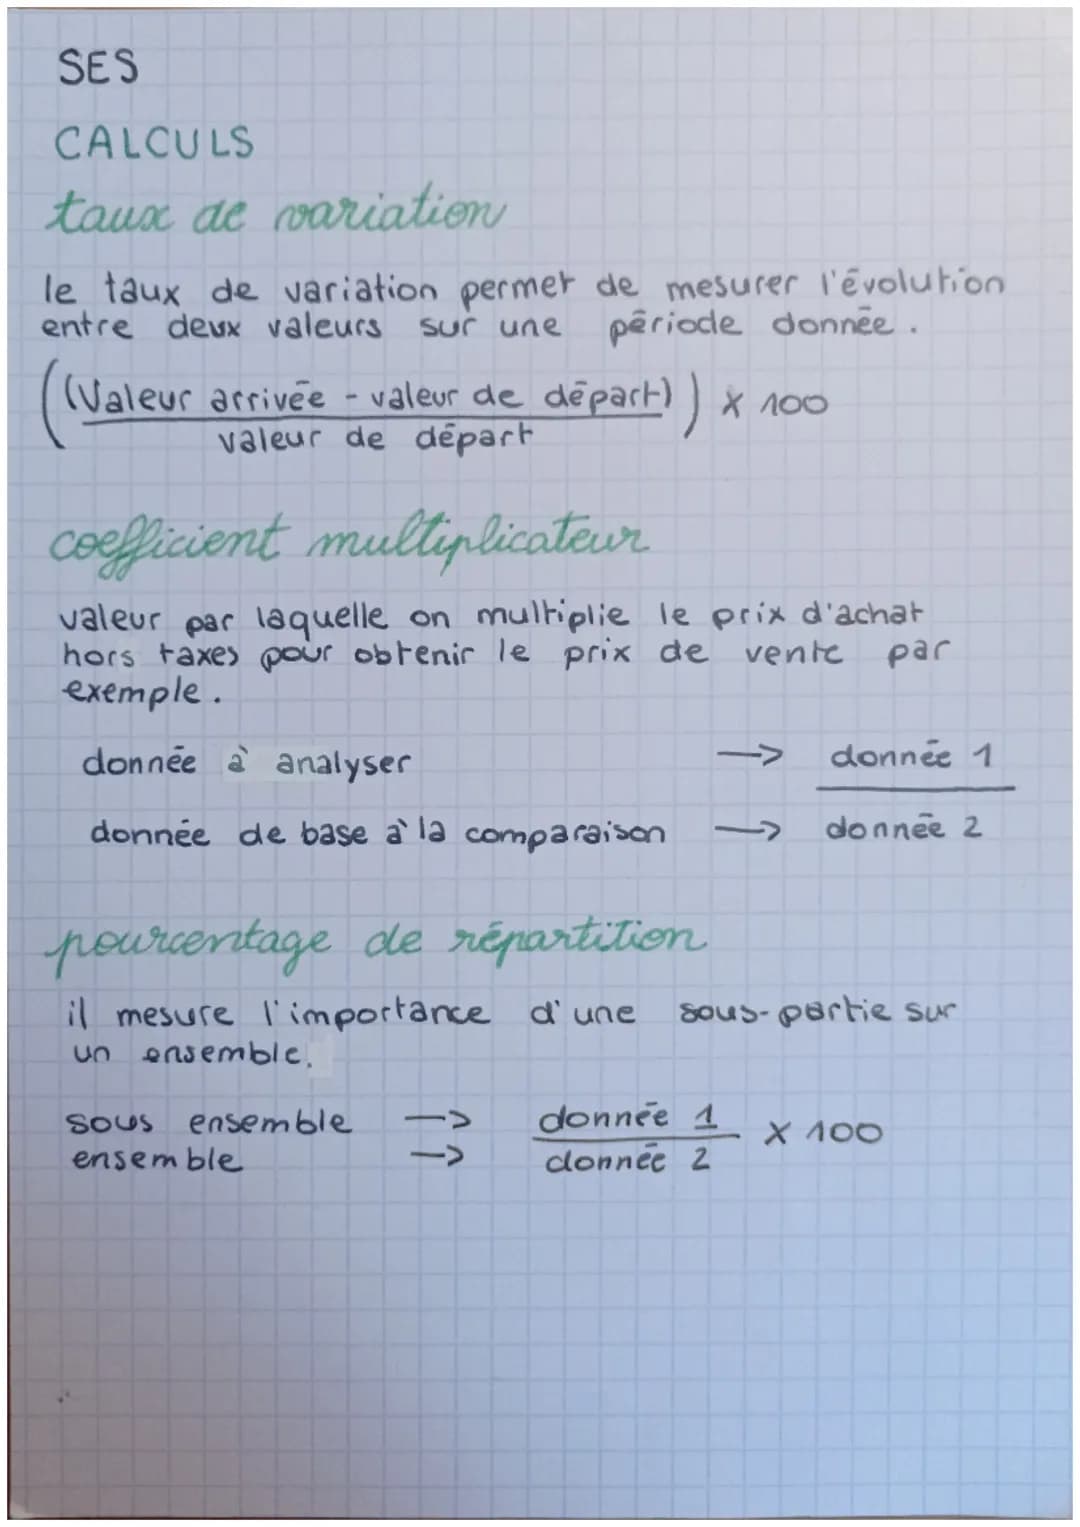 SES
CALCULS
taux de variation
le taux de variation permet de mesurer l'évolution
entre deux valeurs sur une période donnée.
((Valeur arrivée - valeur de départ)) x 100
valeur de départ
coefficient multiplicateur
valeur par laquelle on multiplie le prix d'achat
hors taxes pour obtenir le prix de vente par
exemple.
donnée à analyser -> donnée 1
donnée de base à la comparaison -> donnée 2
pourcentage de répartition
il mesure l'importance d'une sous-partie sur
un ensemble.
sous ensemble -> donnée 1 x 100
ensemble -> donnée 2